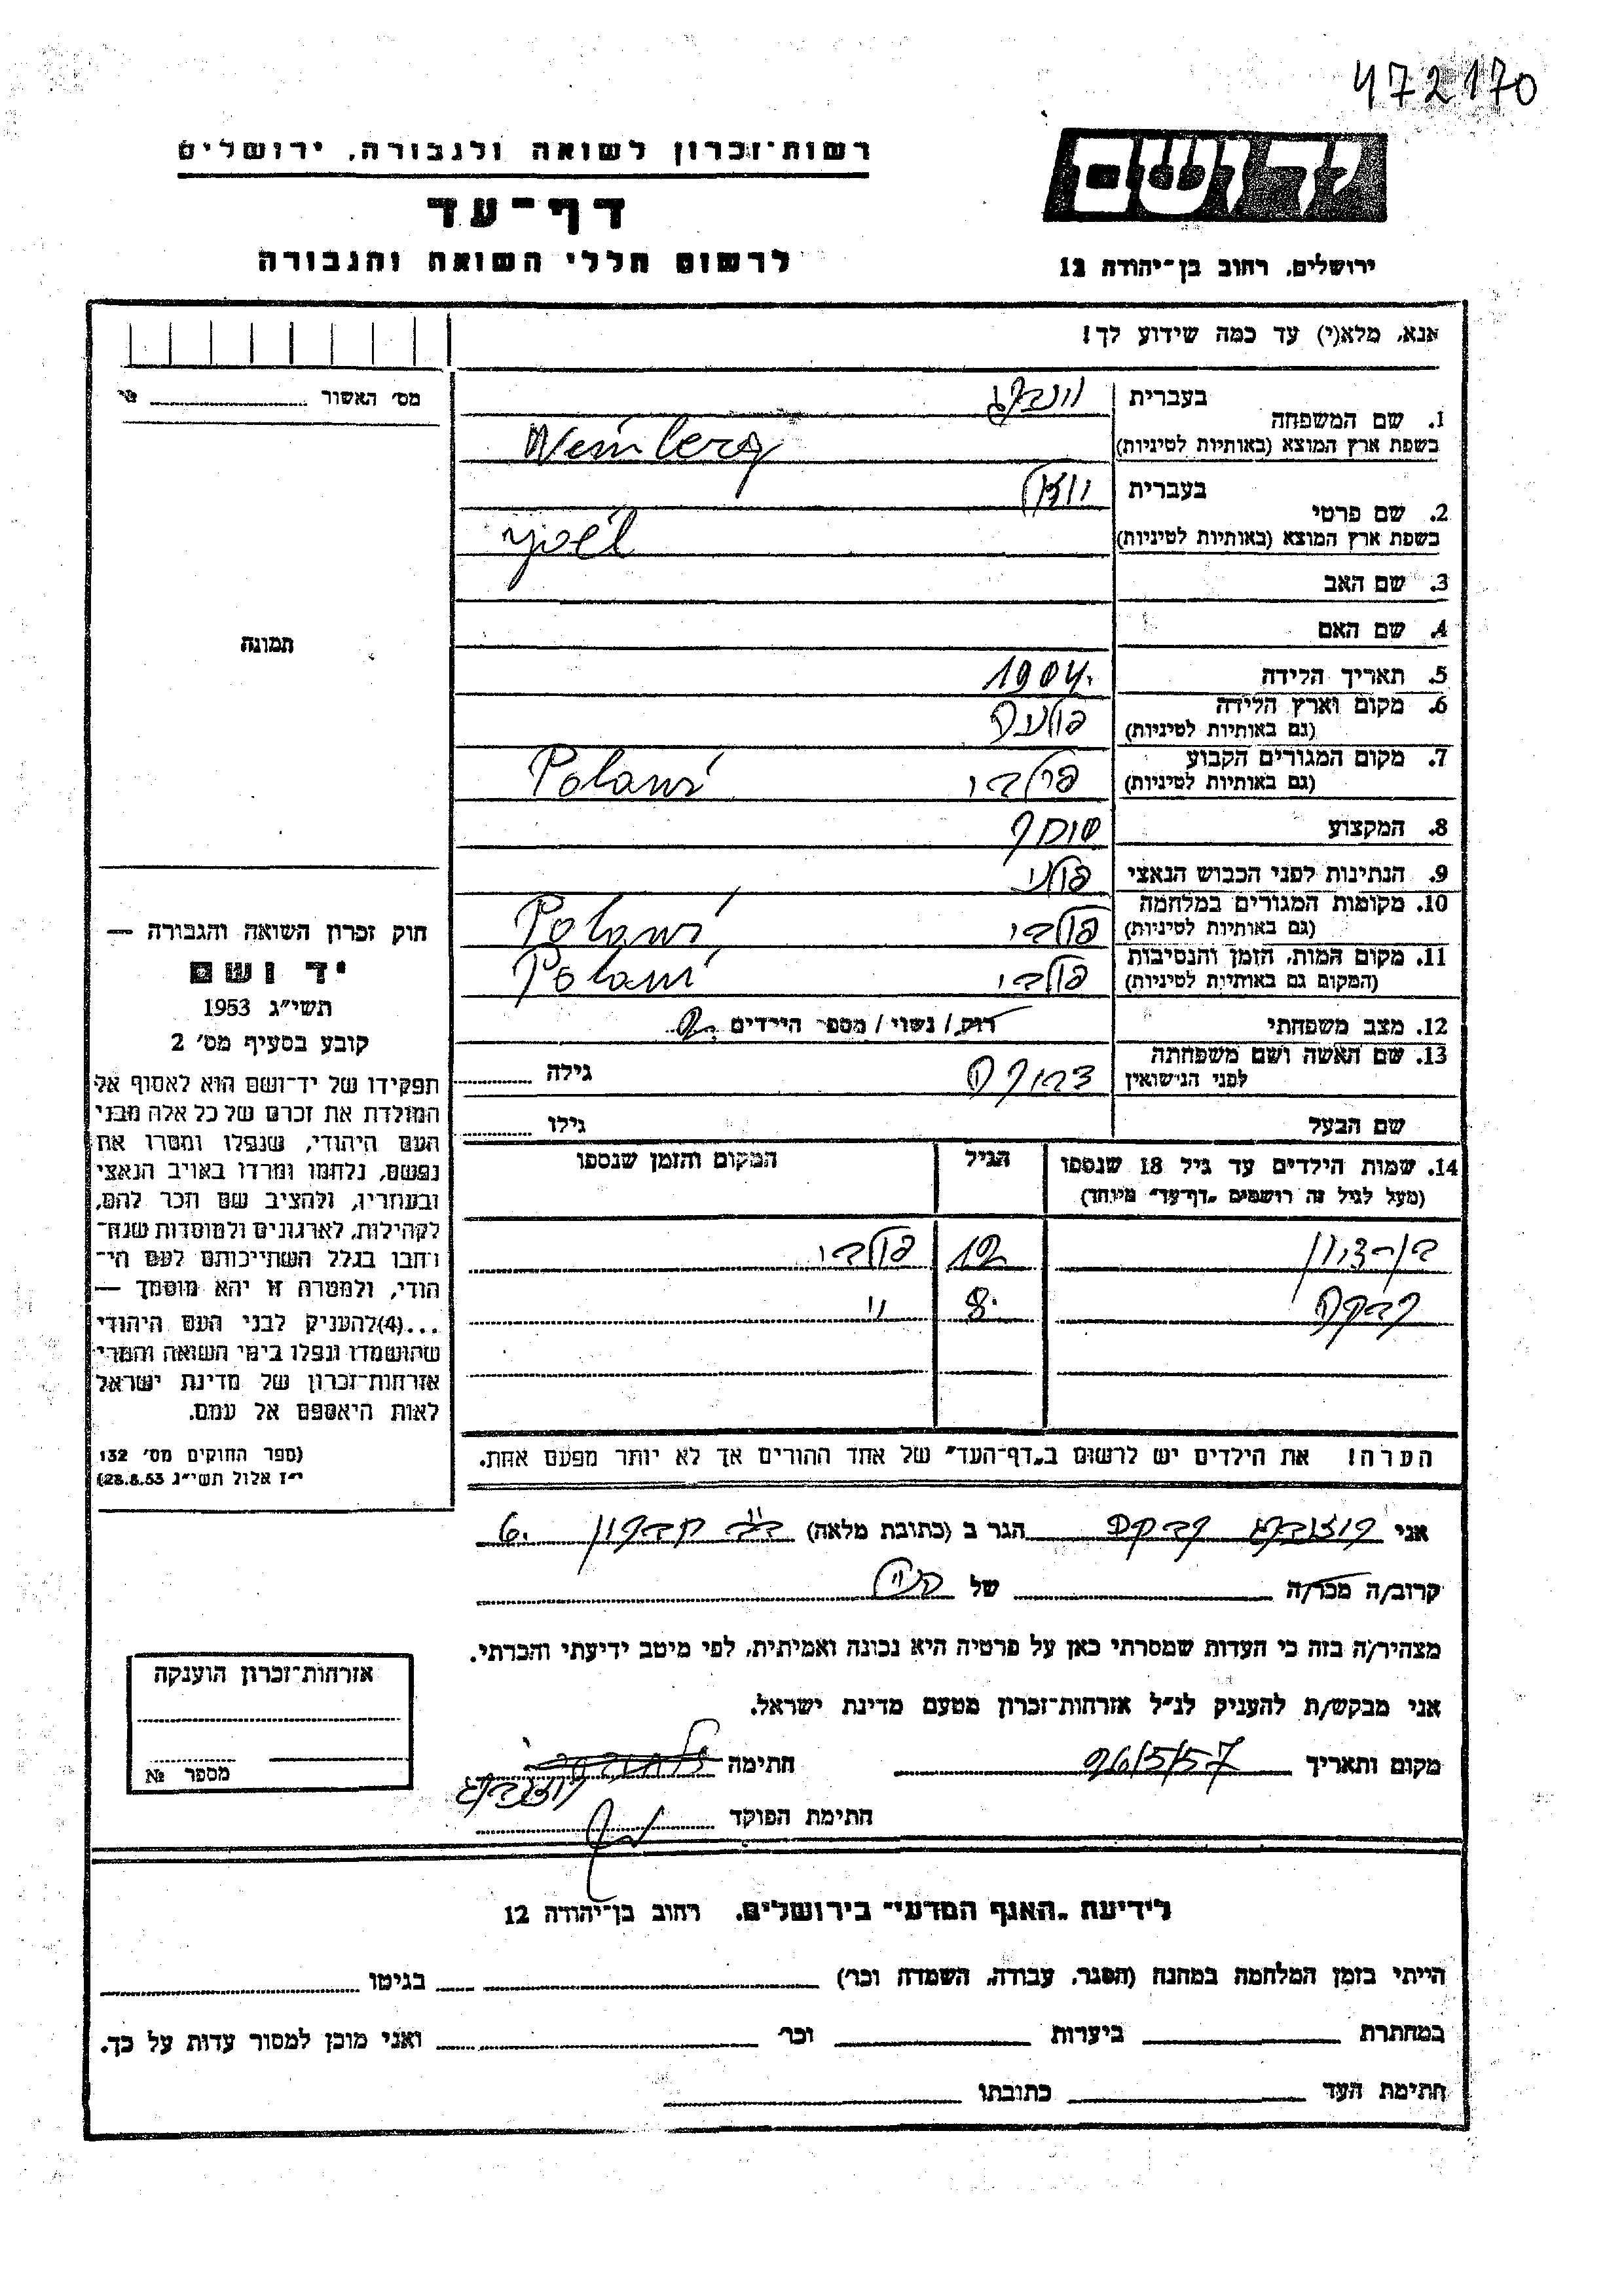 472170
רשות־זכרון לשואה ולגבורה, ירושלים
דף־עד
לרשום חללי השואה והגבורה
יד ושם
ירושלים, רחוב בן־יהודה 12
אנא, מלא(י) עד כמה שידוע לך!
מס׳ האשור
1. שם המשפחה
בעברית
בשפת ארץ המוצא (באותיות לטיניות)
Weinberg
2. שם פרטי
בעברית יואל
בשפת ארץ המוצא (באותיות לטיניות)
Yoel
3. שם האב
4. שם האם
תמונה
5. תאריך הלידה 1904.
6. מקום וארץ הלידה
(גם באותיות לטיניות)
7. מקום המגורים הקבוע
(גם באותיות לטיניות)
Polani
8. המקצוע סוחר
9. הנתינות לפני הכבוש הנאצי פולני
10. מקומות המגורים במלחמה
(גם באותיות לטיניות)
Polani
11. מקום המות, הזמן והנסיבות
(המקום גם באותיות לטיניות)
Polani
12. מצב משפחתי רוק / נשוי / מספר הילדים 2.
13. שם האשה ושם משפחתה
לפני הנישואין
גילה
שם הבעל גילו
14. שמות הילדים עד גיל 18 שנספו
(מעל לגיל זה רושמים „דף־עד״ מיוחד)
הגיל
המקום והזמן שנספו
בן־ציון 12
רבקה 8. ״
הערה! את הילדים יש לרשום ב„דף־העד״ של אחד ההורים אך לא יותר מפעם אחת.
חוק זכרון השואה והגבורה —
יד ושם
תשי״ג 1953
קובע בסעיף מס׳ 2
תפקידו של יד־ושם הוא לאסוף אל
המולדת את זכרם של כל אלה מבני
העם היהודי, שנפלו ומסרו את
נפשם, נלחמו ומרדו באויב הנאצי
ובעוזריו, ולהציב שם וזכר להם,
לקהילות, לארגונים ולמוסדות שנח־
רבו בגלל השתייכותם לעם הי־
הודי, ולמטרה זו יהא מוסמך —
...(4)להעניק לבני העם היהודי
שהושמדו ונפלו בימי השואה והמרי
אזרחות־זכרון של מדינת ישראל
לאות היאספם אל עמם.
(ספר החוקים מס׳ 132
י״ז אלול תשי״ג 28.8.53)
אני רבקה הגר ב (כתובת מלאה) 6.
קרוב/ה מכר/ה של
מצהיר/ה בזה כי העדות שמסרתי כאן על פרטיה היא נכונה ואמיתית, לפי מיטב ידיעתי והכרתי.
אני מבקש/ת להעניק לנ״ל אזרחות־זכרון מטעם מדינת ישראל.
מקום ותאריך 26/5/57 חתימה
חתימת הפוקד
אזרחות־זכרון הוענקה
מספר №
לידיעת „האגף המדעי״ בירושלים, רחוב בן־יהודה 12
הייתי בזמן המלחמה במחנה (הסגר, עבודה, השמדה וכר׳) בגיטו
במחתרת ביערות וכר׳ ואני מוכן למסור עדות על כך.
חתימת העד כתובתו